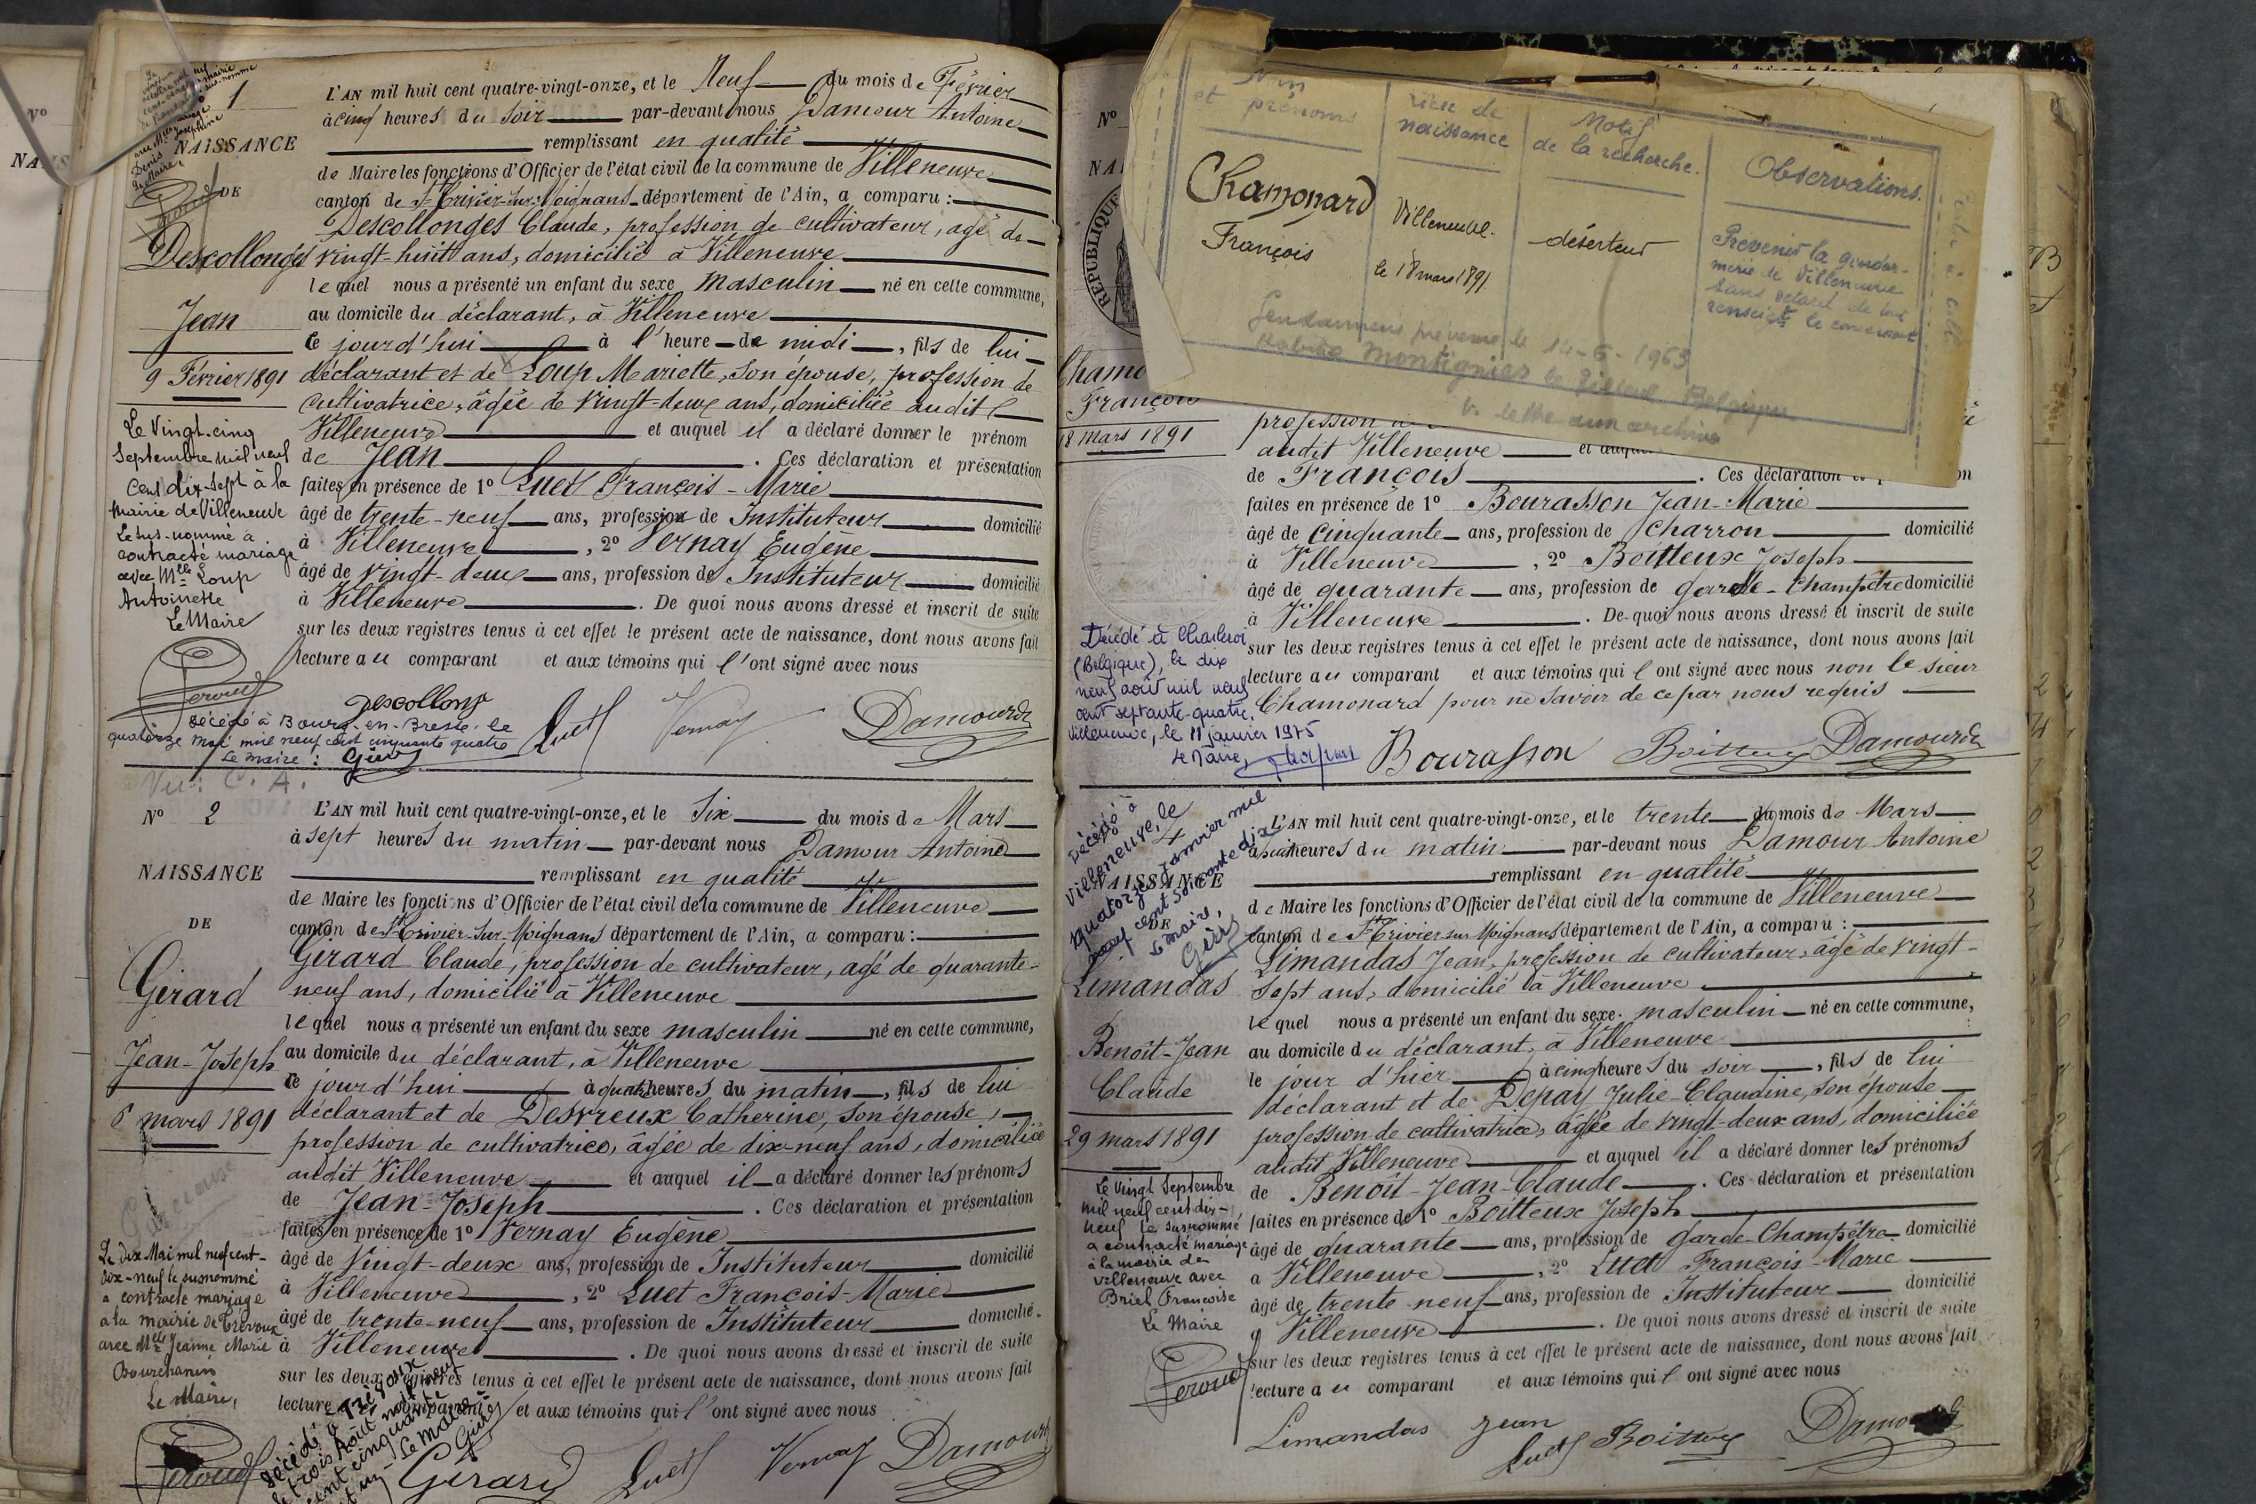 1
NAISSANCE
DE
Descollonges
Jean
9 Février 1891
Le Vingt-cinq
Septembre mil neuf
cent dix-sept à la
Mairie de Villeneuve
Le sus-nommé à
contracté mariage
avec Mlle Loup
Antoinette
Le Maire
L'AN mil huit cent quatre-vingt-onze, et le Neuf du mois de Février
à cinq heures du Soir par-devant nous Damour Antoine
remplissant en qualité
de Maire les fonctions d'Officier de l'état civil de la commune de Villeneuve
canton de St Trivier-sur-Moignans département de l'Ain, a comparu :
Descollonges Claude, profession de cultivateur, agé de
vingt-huit ans, domicilié à Villeneuve
lequel nous a présenté un enfant du sexe masculin né en cette commune,
au domicile du déclarant, à Villeneuve
ce jourd'hui à l'heure de midi, fils de lui
déclarant et de Loup Mariette, son épouse, profession de
cultivatrice, âgée de vingt-deux ans, domiciliée audit
Villeneuve et auquel il a déclaré donner le prénom
de Jean. Ces déclaration et présentation
faites en présence de 1º Luet François-Marie
âgé de trente-neuf ans, profession de Instituteur domicilié
à Villeneuve, 2º Vernay Eugène
âgé de vingt-deux ans, profession de Instituteur domicilié
à Villeneuve. De quoi nous avons dressé et inscrit de suite
sur les deux registres tenus à cet effet le présent acte de naissance, dont nous avons fait
lecture au comparant et aux témoins qui l'ont signé avec nous
Descollonges Luet Vernay Damour
Décédé à Bourg-en-Bresse le
quatorze mai mil neuf cent cinquante quatre
Le Maire :
Vu : C. A.
Nº 2
NAISSANCE
DE
Girard
Jean-Joseph
6 mars 1891
Le dix Mai mil neuf cent-
dix-neuf le susnommé
a contracté mariage
à la mairie de Trévoux
avec Mlle Jeanne Marie
Bourchanin
Le Maire,
L'AN mil huit cent quatre-vingt-onze, et le Six du mois de Mars
à sept heures du matin par-devant nous Damour Antoine
remplissant en qualité
de Maire les fonctions d'Officier de l'état civil de la commune de Villeneuve
canton de St Trivier-sur-Moignans département de l'Ain, a comparu :
Girard Claude, profession de cultivateur, agé de quarante-
neuf ans, domicilié à Villeneuve
lequel nous a présenté un enfant du sexe masculin né en cette commune,
au domicile du déclarant, à Villeneuve
ce jourd'hui à quatre heures du matin, fils de lui
déclarant et de Desvreux Catherine, son épouse,
profession de cultivatrice, âgée de dix-neuf ans, domiciliée
audit Villeneuve et auquel il a déclaré donner les prénoms
de Jean-Joseph. Ces déclaration et présentation
faites en présence de 1º Vernay Eugène
âgé de vingt-deux ans, profession de Instituteur domicilié
à Villeneuve, 2º Luet François-Marie
âgé de trente-neuf ans, profession de Instituteur domicilié
à Villeneuve. De quoi nous avons dressé et inscrit de suite
sur les deux registres tenus à cet effet le présent acte de naissance, dont nous avons fait
lecture au comparant et aux témoins qui l'ont signé avec nous
Décédé à Trévoux
le trois Août mil neuf
cent cinquante
Le Maire
Girard Luet Vernay Damour
Nom et prénoms
Lieu de naissance
Motif de la recherche.
Observations.
Chamonard
François
Villeneuve.
le 18 mars 1891.
déserteur
Prévenir la gendar-
merie de Villeneuve
sans retard de tout
renseigt le concernant
Gendarmerie prévenue le 14-6-1963
Habite Montignies le Tilleul Belgique
Nº
RÉPUBLIQUE
François
18 Mars 1891
audit Villeneuve
de François. Ces déclaration
faites en présence de 1º Bourasson Jean-Marie
âgé de cinquante ans, profession de charron domicilié
à Villeneuve, 2º Boitteux Joseph
âgé de quarante ans, profession de garde-champêtre domicilié
à Villeneuve. De quoi nous avons dressé et inscrit de suite
sur les deux registres tenus à cet effet le présent acte de naissance, dont nous avons fait
lecture au comparant et aux témoins qui l'ont signé avec nous non le sieur
Chamonard pour ne savoir de ce par nous requis
Bourasson Boitteux Damour
Décédé à Charleroi
(Belgique), le dix
neuf août mil neuf
cent septante-quatre.
Villeneuve, le 11 janvier 1975
Le Maire,
Décédé à
Villeneuve, le
quatorze Janvier mil
neuf cent soixante dix
Le Maire,
NAISSANCE
DE
Limandas
Benoît-Jean
Claude
29 mars 1891
Le vingt Septembre
mil neuf cent dix-
neuf le susnommé
a contracté mariage
à la mairie de
Villeneuve avec
Briel Françoise
Le Maire
L'AN mil huit cent quatre-vingt-onze, et le trente du mois de Mars
heures du matin par-devant nous Damour Antoine
remplissant en qualité
de Maire les fonctions d'Officier de l'état civil de la commune de Villeneuve
canton de St Trivier sur Moignans département de l'Ain, a comparu :
Limandas Jean, profession de cultivateur, âgé de vingt-
sept ans, domicilié à Villeneuve
lequel nous a présenté un enfant du sexe masculin né en cette commune,
au domicile du déclarant, à Villeneuve
le jour d'hier à cinq heures du soir, fils de lui
déclarant et de Depay Julie-Claudine, son épouse
profession de cultivatrice, âgée de vingt-deux ans, domiciliée
audit Villeneuve et auquel il a déclaré donner les prénoms
de Benoît-Jean-Claude. Ces déclaration et présentation
faites en présence de 1º Boitteux Joseph
âgé de quarante ans, profession de garde-Champêtre domicilié
à Villeneuve, 2º Luet François-Marie
âgé de trente neuf ans, profession de Instituteur domicilié
à Villeneuve. De quoi nous avons dressé et inscrit de suite
sur les deux registres tenus à cet effet le présent acte de naissance, dont nous avons fait
lecture au comparant et aux témoins qui l'ont signé avec nous
Limandas Jean Luet Boitteux Damour